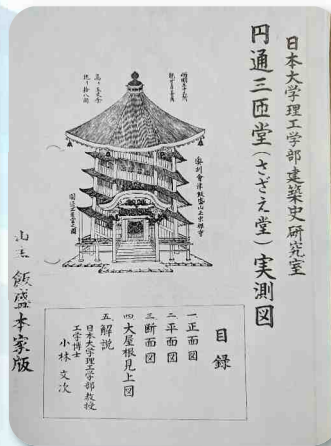 日本大学理工学部建築史研究室
円通三匝堂(さざえ堂)実測図
奥州會津飯盛山上正宗寺
目録
一 正面図
二 平面図
三 断面図
四 大屋根見上図
五 解説
日本大学理工学部教授
工学博士
小林文次
山主 飯盛本家版